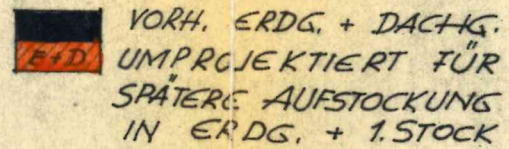 VORH. ERDG. + DACHG.
E+D UMPROJEKTIERT FÜR
SPÄTERE AUFSTOCKUNG
IN ERDG. + 1. STOCK